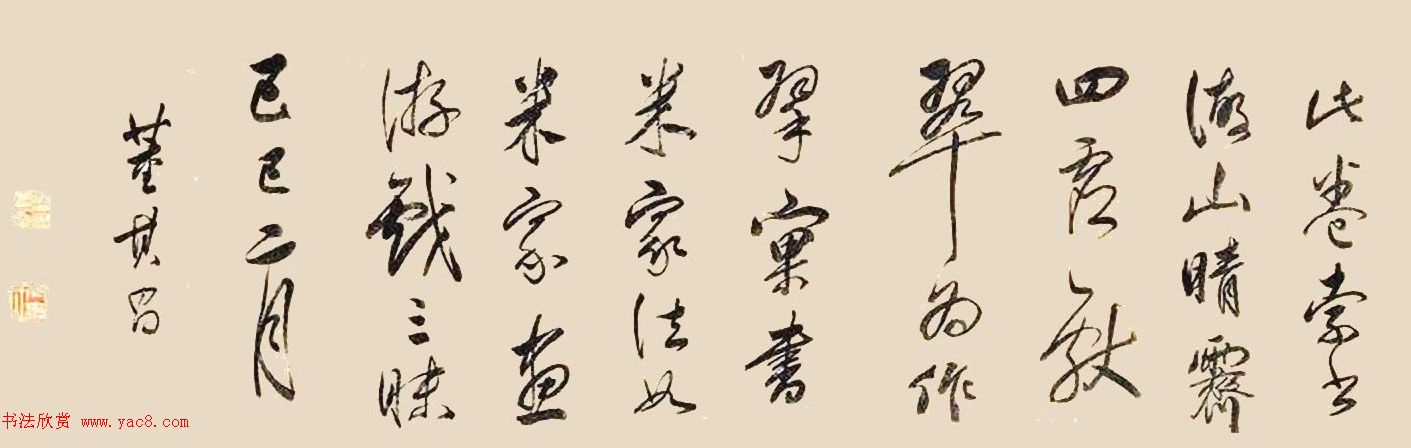 此卷索書
湖山晴霽
四虛献
翠為作
擘窠書
米家法如
米家畫
游戲三昧
己巳二月
董其昌
书法欣赏 www.yac8.com